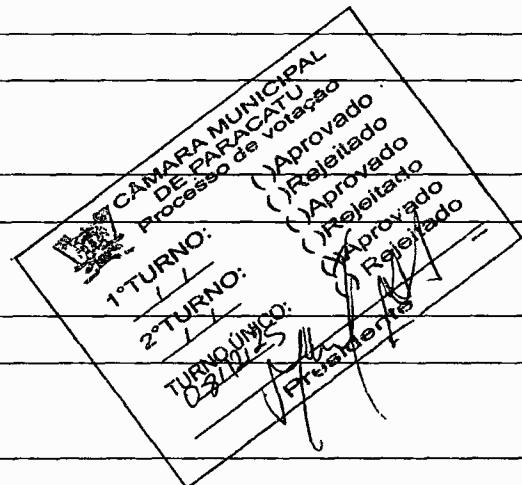 CÂMARA MUNICIPAL
DE PARACATU
Processo de votação
1°TURNO: ( )Aprovado
/ / ( )Rejeitado
2°TURNO: ( )Aprovado
/ / ( )Rejeitado
TURNO ÚNICO: ( )Aprovado
08/12/25 ( ) Rejeitado
Presidente